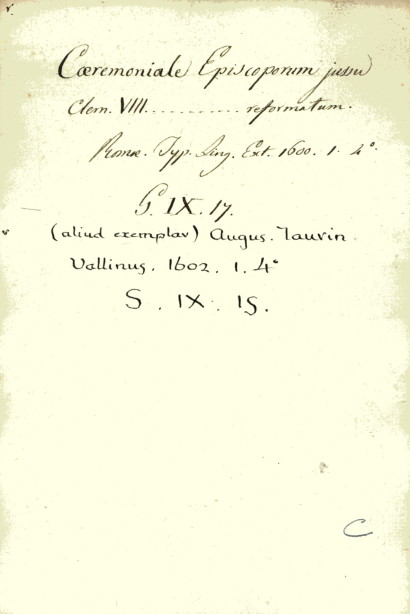 Cæremoniale Episcoporum jussu
Clem. VIII. .......... reformatum.
Romæ. Typ. Ling. Ext. 1600. 1. 4°.
G. IX. 17.
(aliud exemplar) Augus. Taurin.
Vallinus. 1602. 1. 4°
S. IX. 15.
C